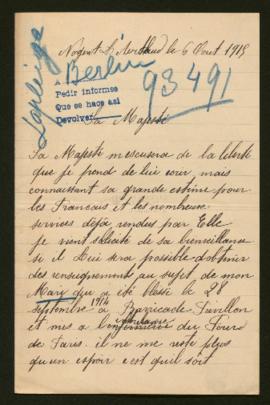 Nogent L'Artaud le 6 Aout 1915
Berlin
93491
Pedir informes
Que se hace así
Devolver
Sa Majesté
Sa Majesté mescusera de la liberté
que je prend de lui, mais
connaissant sa grande estime pour
les Francais et les nombreuse
services déjà rendus par Elle
je vient sa bienveillance
si il Lui sera possible d'obtenir
des renseignements au sujet de mon
Mari qui a été blessé le 28
Septembre 1914 a
et mis a du Four
de Paris il ne me reste plus
qu'un espoir c'est qu'il soit